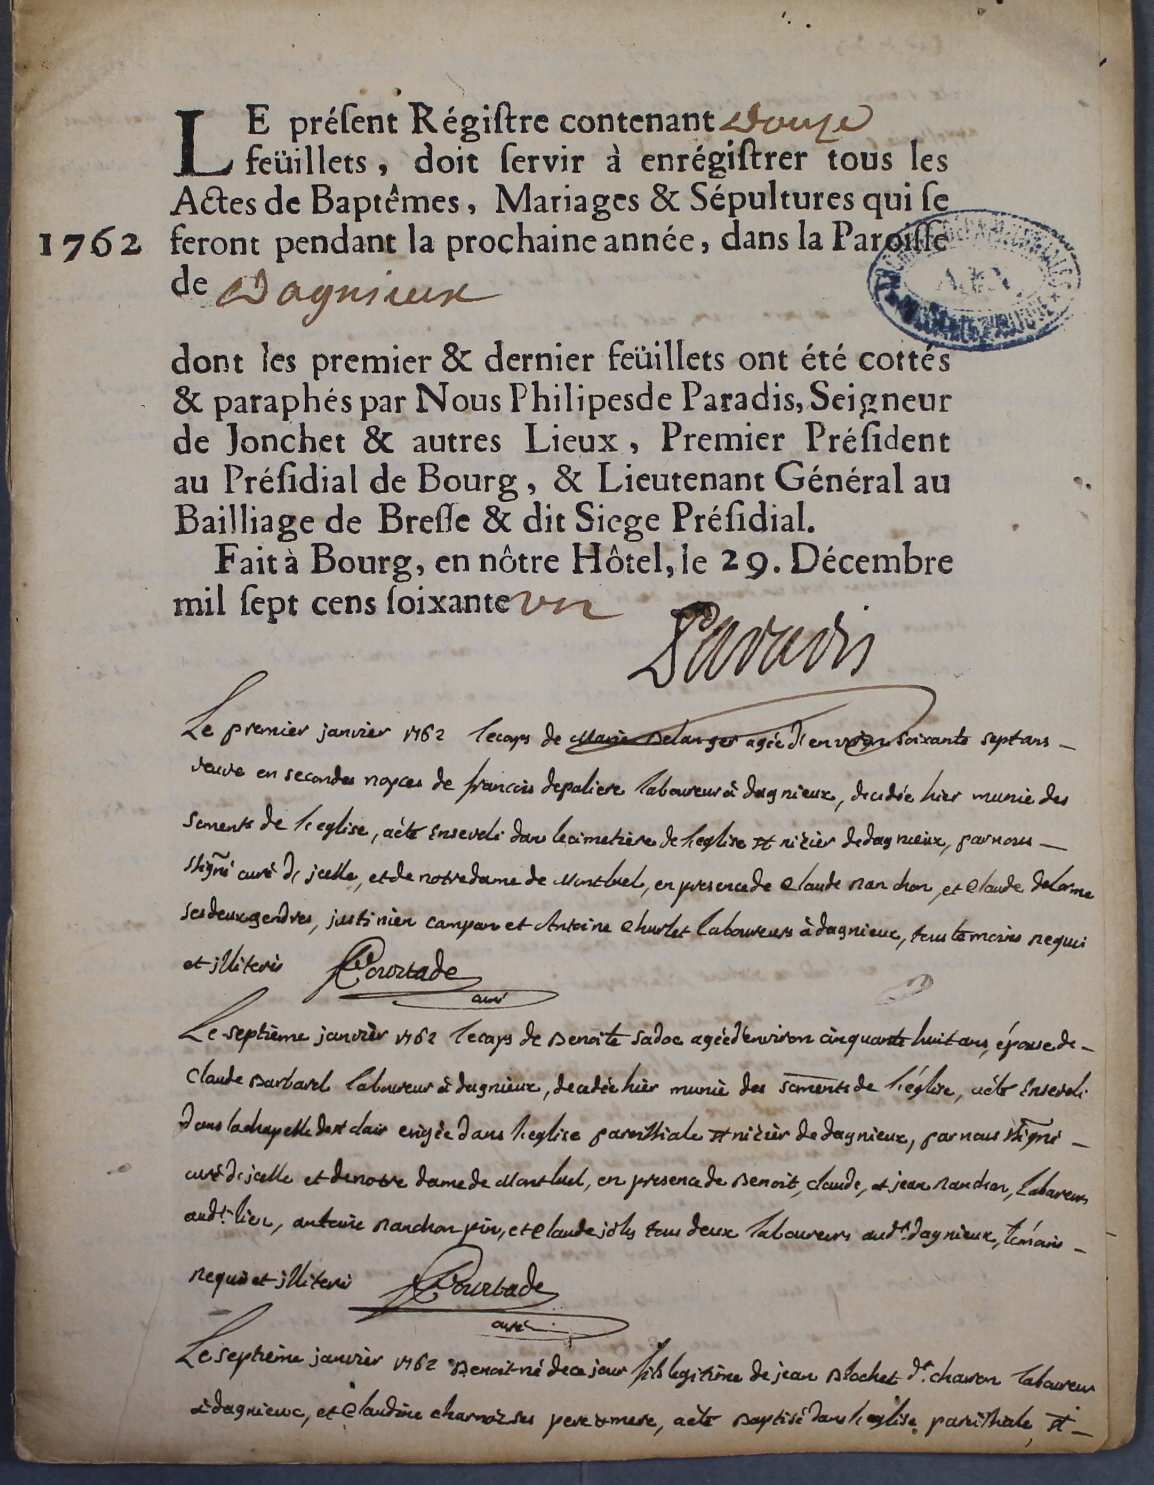 LE préſent Régiſtre contenant Douze
feüillets, doit ſervir à enrégiſtrer tous les
Actes de Baptêmes, Mariages & Sépultures qui ſe
1762 feront pendant la prochaine année, dans la Paroiſſe
de Dagnieux
dont les premier & dernier feüillets ont été cottés
& paraphés par Nous Philipes de Paradis, Seigneur
de Jonchet & autres Lieux, Premier Préſident
au Préſidial de Bourg, & Lieutenant Général au
Bailliage de Breſſe & dit Siege Préſidial.
Fait à Bourg, en nôtre Hôtel, le 29. Décembre
mil ſept cens ſoixante un
Paradis
Le premier janvier 1762 le corps de Marie Belanger agée d'environ soixante sept ans
veuve en secondes nopces de francois depaliere laboureur à dagnieux, decedée hier munie des
sements de l'eglise, aété Enseveli dans le cimetière de l'eglise st nizier de dagnieux, par nous
ssigné curé d'jcelle, et de notre dame de Montluel, en presence de Claude nanchon, et Claude delorme
ses deux gendres, justinien campan et Antoine Churlet laboureurs à dagnieux, tous temoins requi
et jlliteris Courtade
curé
Le septième janvièr 1762 le corps de Benoite sadoc agée d'environ cinquante huit ans, épouse de
Claude Barbarel laboureur à dagnieux, decedée hier munie des sements de l'église, aété Enseveli
dans la chapelle de st clair erigée dans l'eglise paroissiale st nizièr de dagnieux, par nous ssigné
curé d'jcelle et de notre dame de Montluel, en presence de Benoit, claude, et jean nanchon, laboureurs
aud.t lieu, antoine nanchon, et Claude joly tous deux laboureurs aud.t dagnieux, témoins
requis et jlliteris Courtade
curé
Le septième janvièr 1762 Benoit né de ce jour fils legitime de jean Blochet d.t charon laboureur
à dagnieux, et Claudine charvoz ses pere & mere, aété Baptisé dans l'eglise paroissiale, st